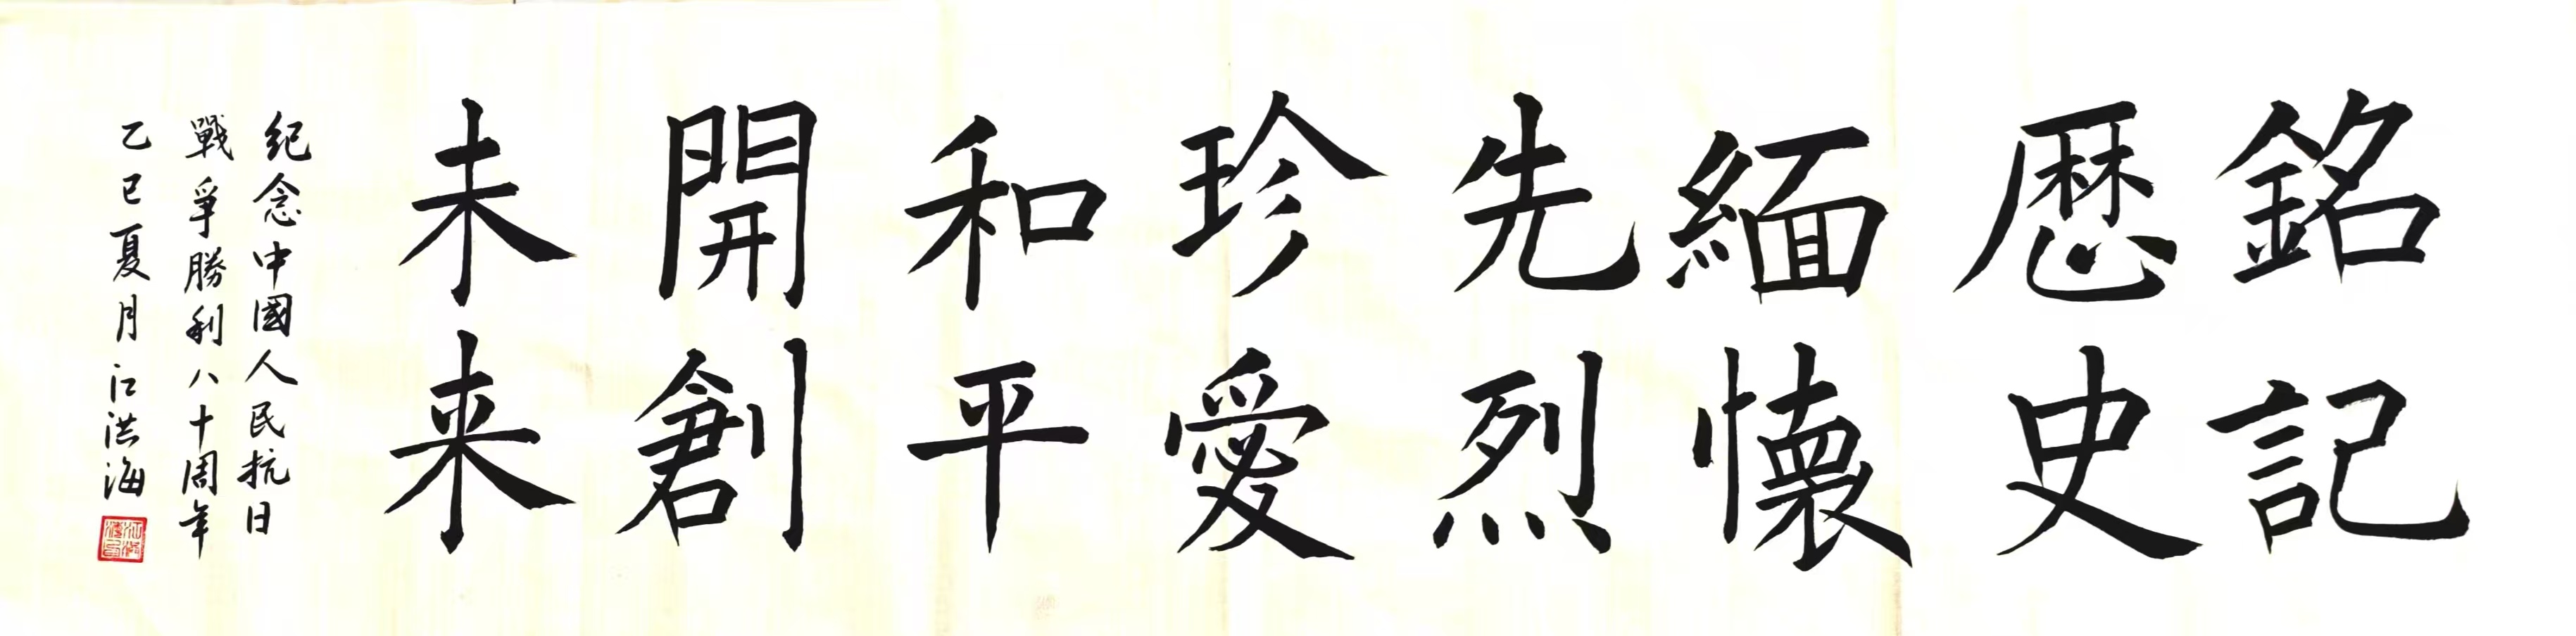 銘記
歴史
緬懐
先烈
珍愛
和平
開創
未来
紀念中國人民抗日
戰爭勝利八十周年
乙巳夏月江洪海